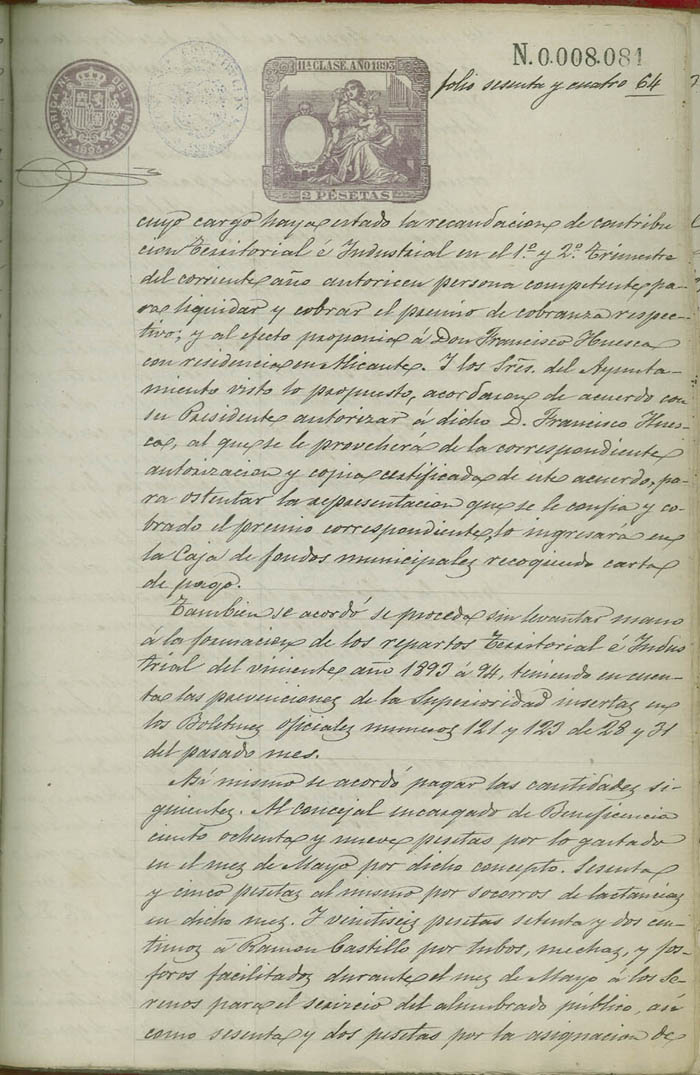 N.0.008.081
11ª CLASE. AÑO 1893
FABRICA DEL TIMBRE
1893
2 PESETAS
folio sesenta y cuatro 64
cuyo cargo haya estado la recaudacion de contribu
cion Territorial é Industrial en el 1º y 2º Trimestre
del corriente año autoricen persona competente pa-
ra liquidar y cobrar el premio de cobranza respec-
tivo; y al efecto proponia á Don Francisco Huesca
con residencia en Alicante. I los Sres. del Ayunta-
miento visto lo propuesto, acordaron de acuerdo con
su Presidente autorizar á dicho D. Francisco Hues-
ca, al que se le proveherá de la correspondiente
autorizacion y copia certificada de este acuerdo, pa-
ra ostentar la representacion que se le confia y co-
brado el premio correspondiente, lo ingresará en
la Caja de fondos municipales recogiendo carta
de pago.
Tambien se acordó se proceda sin levantar mano
á la formacion de los repartos Territorial é Indus
trial del viniente año 1893 á 94, teniendo en cuen-
ta las prevenciones de la Superioridad insertas en
los Boletines oficiales numeros 121 y 123 de 28 y 31
del pasado mes.
Asi mismo se acordó pagar las cantidades si-
guientes. Al concejal encargado de Beneficencia
ciento ochenta y nueve pesetas por lo gastado
en el mes de Mayo por dicho concepto. Sesenta
y cinco pesetas al mismo por socorros de lactancias
en dicho mes. I veintiseis pesetas setenta y dos cen-
timos a Ramon Castillo por tubos, mechas, y fos-
foros facilitados durante el mes de Mayo á los se-
renos para el servicio del alumbrado público, asi
como sesenta y dos pesetas por la asignacion de